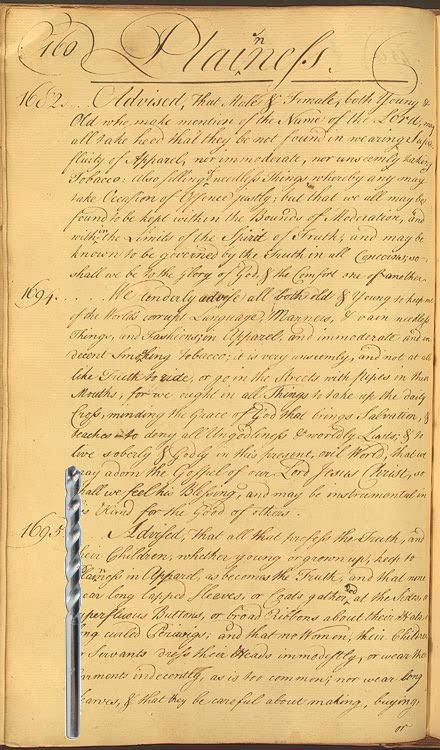 160
Plainness.
1682. . . Advised, That Male & Female, both Young &
Old who make mention of the Name of the Lord, may
all take heed that they be not found in wearing Supe
fluity of Apparel, nor immoderate, nor unseemly taking
Tobacco: Also selling needless Things whereby any may
take Occasion of Offence justly; but that we all may be
found to be kept within the Bounds of Moderation, and
within the Limits of the Spirit of Truth; and may be
known to be governed by the Truth in all Concerns, so
shall we be to the Glory of God, & the Comfort one of another.
1694. . . . . We tenderly advise all both old & Young to keep out
of the World's corrupt Language, Manners, & vain needless
Things, and Fashions, in Apparel, and immoderate and in
decent Smoking Tobacco; it is very unseemly, and not at all
like Truth to ride, or go in the Streets with pipes in their
Mouths, for we ought in all Things to take up the daily
Cross, minding the Grace of God that brings Salvation, &
teaches to deny all Ungodliness & worldly Lusts, & to
live soberly & Godly in this present, evil World, that we
may adorn the Gospel of our Lord Jesus Christ, so
shall we feel his Blessing, and may be instrumental in
his Hand for the Good of others.
1695. Advised, That all that profess the Truth, and
their Children, whether young or grown up, keep to
Plainness in Apparel, as becomes the Truth, and that none
wear long lapped Sleeves, or Coats gather'd at the Sides, or
superfluous Buttons, or broad Ribbons about their Hats, or
long curled Periwigs, and that no Women, their Children
or Servants dress their Heads immodestly, or wear their
Garments indecently, as is too common; nor wear long
Scarves, & that they be careful about making, buying,
or